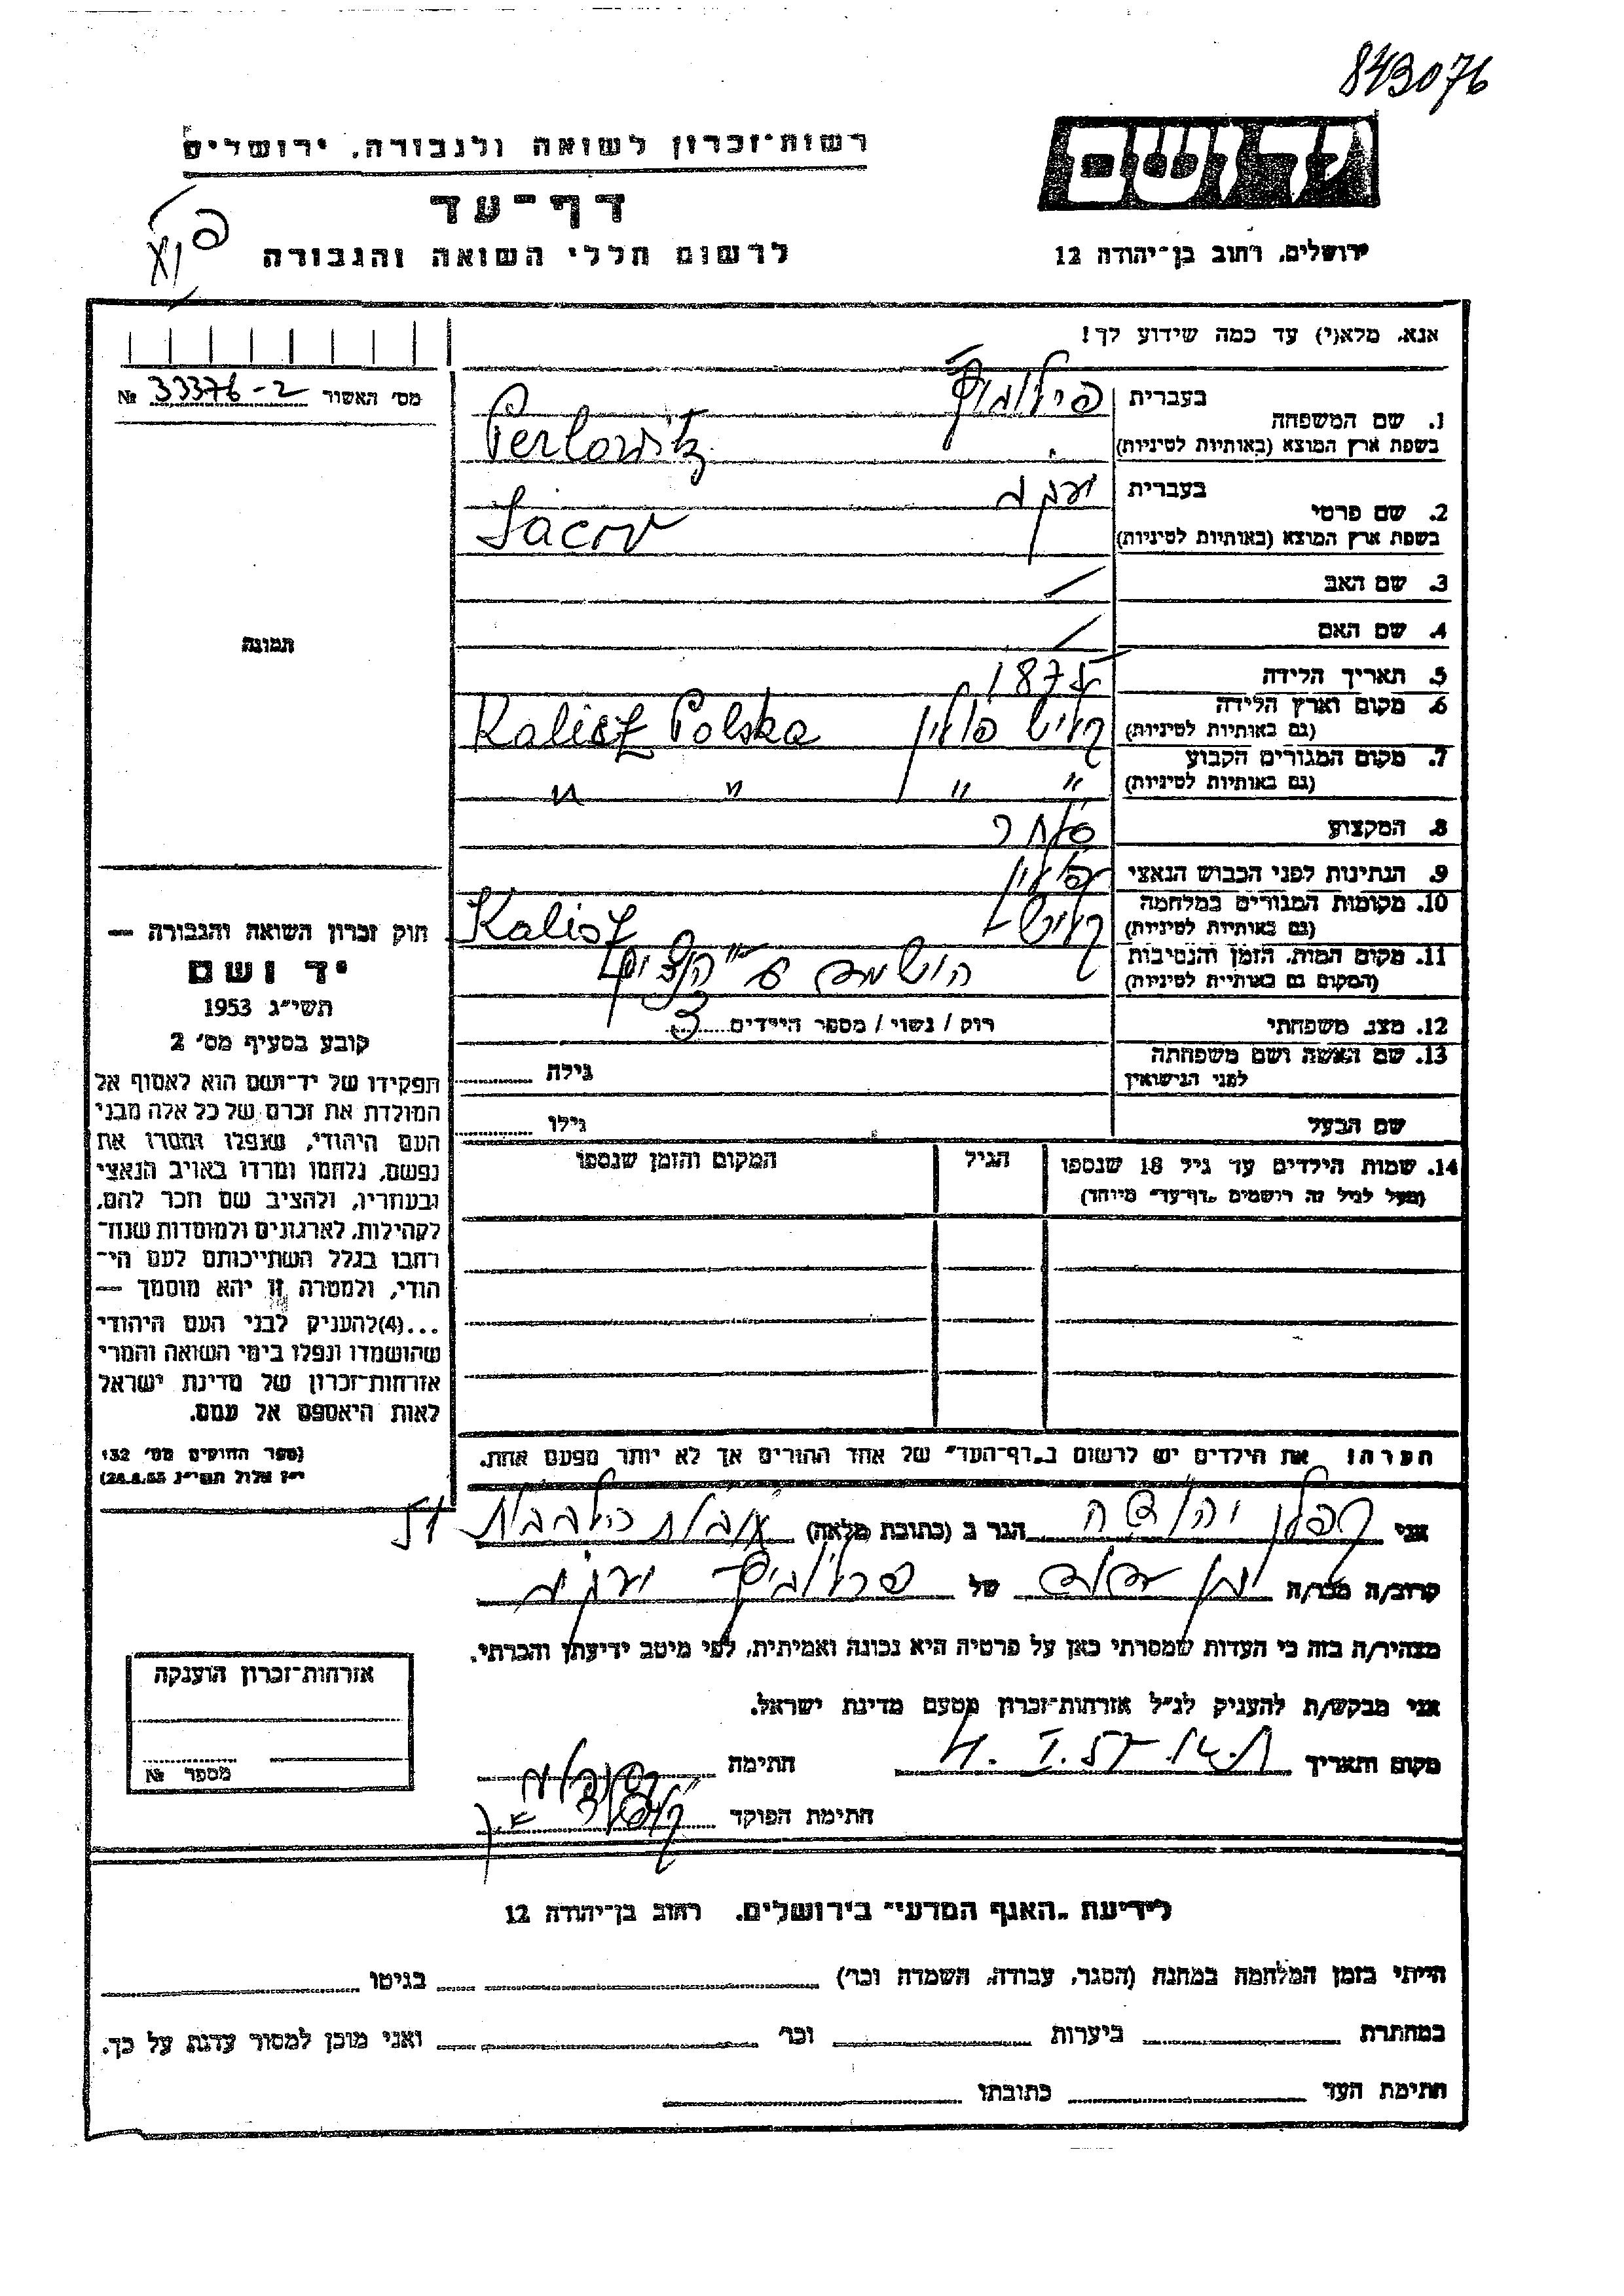 843076
רשות־זכרון לשואה ולגבורה, ירושלים
דף־עד
לרשום חללי השואה והגבורה
יד ושם
ירושלים, רחוב בן־יהודה 12
אנא, מלא(י) עד כמה שידוע לך!
מס׳ האשור 33376-2 №
תמונה
1. שם המשפחה
בעברית
בשפת ארץ המוצא (באותיות לטיניות) Perlowitz
2. שם פרטי
בעברית יעקב
בשפת ארץ המוצא (באותיות לטיניות) Jacov
3. שם האב
4. שם האם
5. תאריך הלידה 1875
6. מקום וארץ הלידה קליש פולין Kalisz Polska
(גם באותיות לטיניות)
7. מקום המגורים הקבוע " " " "
(גם באותיות לטיניות)
8. המקצוע סוחר
9. הנתינות לפני הכבוש הנאצי
10. מקומות המגורים במלחמה קליש Kalisz
(גם באותיות לטיניות)
11. מקום המות, הזמן והנסיבות הושמד ע"י
(המקום גם באותיות לטיניות)
12. מצב משפחתי רוק / נשוי / מספר הילדים 3
13. שם האשה ושם משפחתה
לפני הנישואין
גילה
שם הבעל גילו
14. שמות הילדים עד גיל 18 שנספו
(מעל לגיל זה רושמים „דף־עד״ מיוחד)
הגיל
המקום והזמן שנספו
הערה: את הילדים יש לרשום ב„דף־העד״ של אחד ההורים אך לא יותר מפעם אחת.
חוק זכרון השואה והגבורה —
יד ושם
תשי״ג 1953
קובע בסעיף מס׳ 2
תפקידו של יד־ושם הוא לאסוף אל
המולדת את זכרם של כל אלה מבני
העם היהודי, שנפלו ומסרו את
נפשם, נלחמו ומרדו באויב הנאצי
ובעוזריו, ולהציב שם וזכר להם,
לקהילות, לארגונים ולמוסדות שנח־
רבו בגלל השתייכותם לעם הי־
הודי, ולמטרה זו יהא מוסמך —
...(4)להעניק לבני העם היהודי
שהושמדו ונפלו בימי השואה והמרי
אזרחות־זכרון של מדינת ישראל
לאות היאספם אל עמם.
(ספר החוקים מס׳ 132
י״ז אלול תשי״ג 28.8.53)
אני קפלן יהודה הגר ב (כתובת מלאה)
קרוב/ה מכר/ה של פרלוביץ יעקב
מצהיר/ה בזה כי העדות שמסרתי כאן על פרטיה היא נכונה ואמיתית, לפי מיטב ידיעתי והכרתי.
אני מבקש/ת להעניק לנ״ל אזרחות־זכרון מטעם מדינת ישראל.
מקום ותאריך
חתימה
חתימת הפוקד
אזרחות־זכרון הוענקה
מספר №
לידיעת „האגף המדעי״ בירושלים, רחוב בן־יהודה 12
הייתי בזמן המלחמה במחנה (הסגר, עבודה, השמדה וכו׳) בגיטו
במחתרת ביערות וכו׳ ואני מוכן למסור עדות על כך.
חתימת העד כתובתו